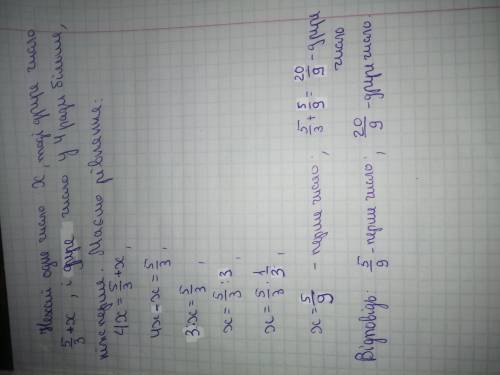 Нехай одне число x, тоді друге число
5/3 + x, і друге число у 4 рази більше,
ніж перше. Маємо рівняння:
4x = 5/3 + x,
4x - x = 5/3,
3x = 5/3,
x = 5/3 : 3,
x = 5/3 · 1/3,
x = 5/9 - перше число; 5/3 + 5/9 = 20/9 - друге
число
Відповідь: 5/9 - перше число; 20/9 - друге число.